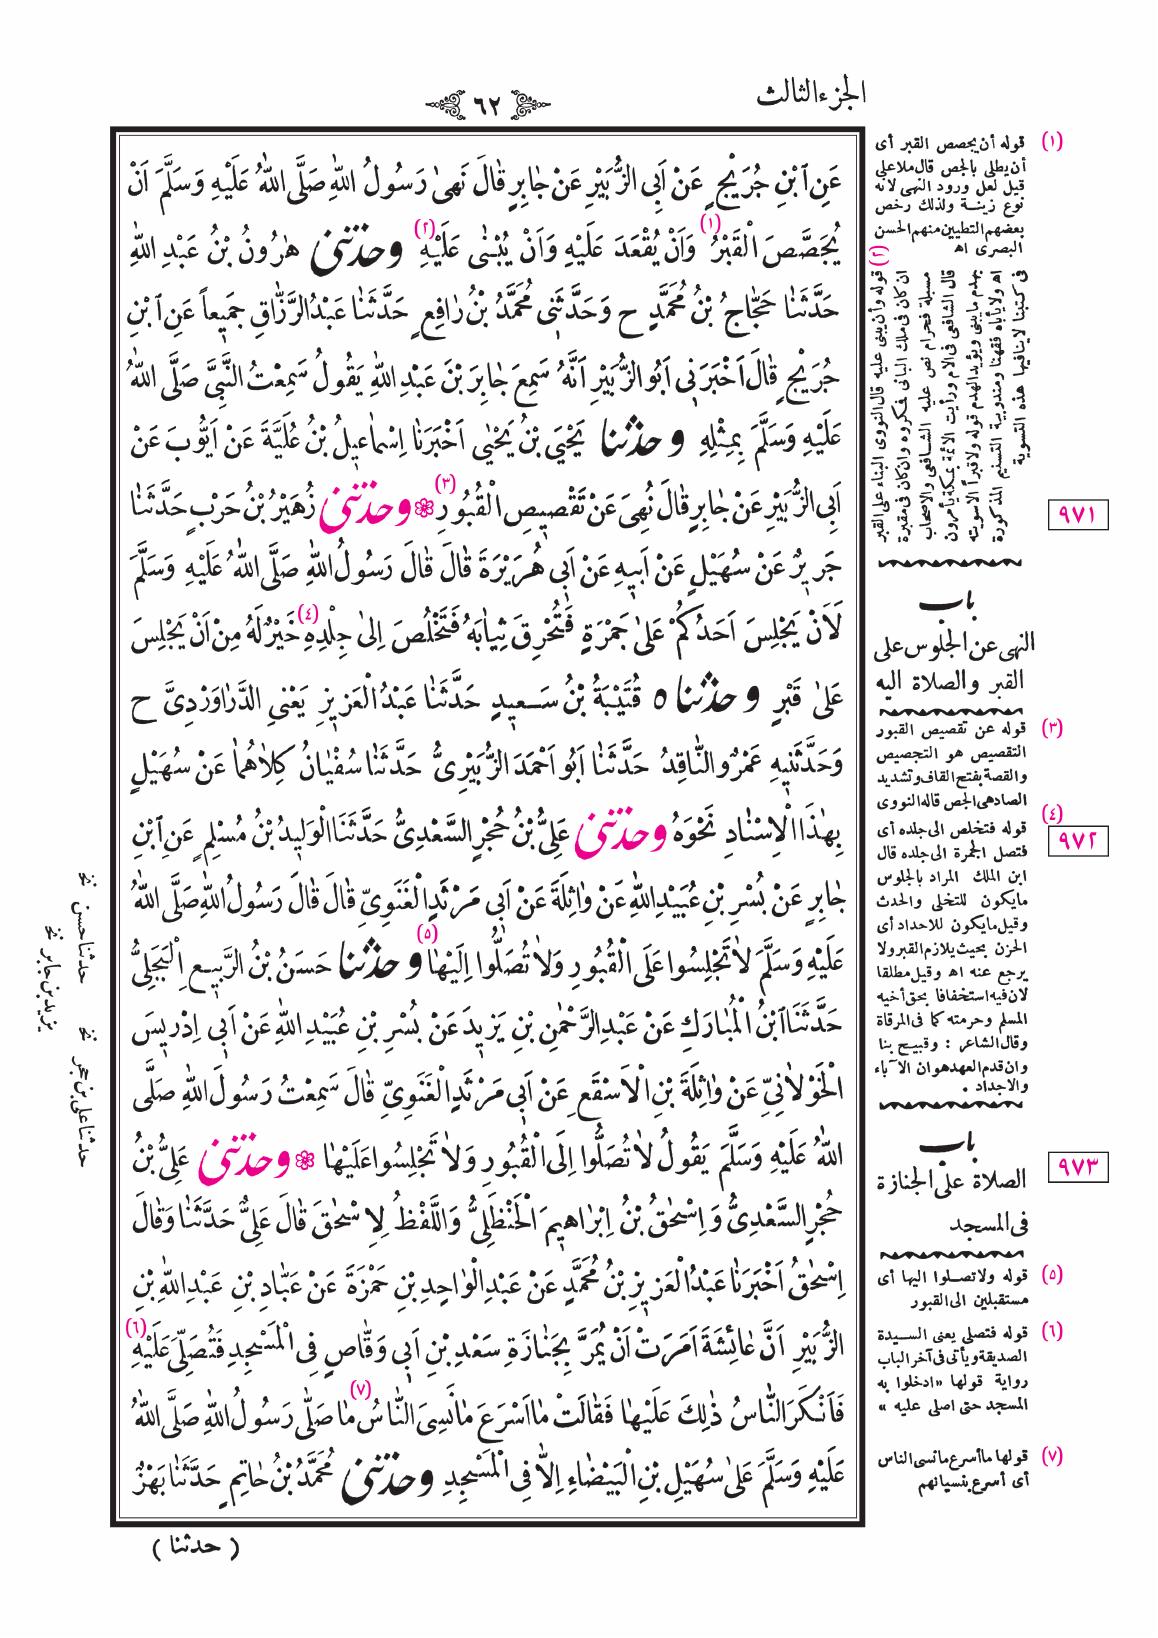 الجزء الثالث
٦٢
عَنِ ابْنِ جُرَيْجٍ عَنْ أَبِى الزُّبَيْرِ عَنْ جَابِرٍ قَالَ نَهَى رَسُولُ اللهِ صَلَّى اللهُ عَلَيْهِ وَسَلَّمَ اَنْ
يُجَصَّصَ الْقَبْرُ (١) وَاَنْ يُقْعَدَ عَلَيْهِ وَاَنْ يُبْنَى عَلَيْهِ (٢) وحدثنى هٰرُونُ بْنُ عَبْدِ اللهِ
حَدَّثَنَا حَجَّاجُ بْنُ مُحَمَّدٍ ح وَحَدَّثَنِى مُحَمَّدُ بْنُ رَافِعٍ حَدَّثَنَا عَبْدُ الرَّزَّاقِ جَمِيعاً عَنِ ابْنِ
جُرَيْجٍ قَالَ اَخْبَرَنِى اَبُو الزُّبَيْرِ اَنَّهُ سَمِعَ جَابِرَ بْنَ عَبْدِ اللهِ يَقُولُ سَمِعْتُ النَّبِىَّ صَلَّى اللهُ
عَلَيْهِ وَسَلَّمَ بِمِثْلِهِ وحدثنا يَحْيَى بْنُ يَحْيٰى اَخْبَرَنَا اِسْمَاعِيلُ بْنُ عُلَيَّةَ عَنْ اَيُّوبَ عَنْ
اَبِى الزُّبَيْرِ عَنْ جَابِرٍ قَالَ نُهِىَ عَنْ تَقْصِيصِ الْقُبُورِ (٣) وحدثنى زُهَيْرُ بْنُ حَرْبٍ حَدَّثَنَا
جَرِيرٌ عَنْ سُهَيْلٍ عَنْ اَبِيهِ عَنْ اَبِى هُرَيْرَةَ قَالَ قَالَ رَسُولُ اللهِ صَلَّى اللهُ عَلَيْهِ وَسَلَّمَ
لَاَنْ يَجْلِسَ اَحَدُكُمْ عَلَى جَمْرَةٍ فَتُحْرِقَ ثِيَابَهُ فَتَخْلُصَ اِلَى جِلْدِهِ (٤) خَيْرٌ لَهُ مِنْ اَنْ يَجْلِسَ
عَلَى قَبْرٍ وحدثنا ه قُتَيْبَةُ بْنُ سَعِيدٍ حَدَّثَنَا عَبْدُ الْعَزِيزِ يَعْنِى الدَّرَاوَرْدِىَّ ح
وَحَدَّثَنِيهِ عَمْرٌو النَّاقِدُ حَدَّثَنَا اَبُو اَحْمَدَ الزُّبَيْرِىُّ حَدَّثَنَا سُفْيَانُ كِلَاهُمَا عَنْ سُهَيْلٍ
بِهٰذَا الْاِسْنَادِ نَحْوَهُ وحدثنى عَلِىُّ بْنُ حُجْرٍ السَّعْدِىُّ حَدَّثَنَا الْوَلِيدُ بْنُ مُسْلِمٍ عَنِ ابْنِ
جَابِرٍ عَنْ بُسْرِ بْنِ عُبَيْدِ اللهِ عَنْ وَاثِلَةَ عَنْ اَبِى مَرْثَدٍ الْغَنَوِىِّ قَالَ قَالَ رَسُولُ اللهِ صَلَّى اللهُ
عَلَيْهِ وَسَلَّمَ لَا تَجْلِسُوا عَلَى الْقُبُورِ وَلَا تُصَلُّوا اِلَيْهَا (٥) وحدثنا حَسَنُ بْنُ الرَّبِيعِ الْبَجَلِىُّ
حَدَّثَنَا ابْنُ الْمُبَارَكِ عَنْ عَبْدِ الرَّحْمٰنِ بْنِ يَزِيدَ عَنْ بُسْرِ بْنِ عُبَيْدِ اللهِ عَنْ اَبِى اِدْرِيسَ
الْخَوْلَانِىِّ عَنْ وَاثِلَةَ بْنِ الْاَسْقَعِ عَنْ اَبِى مَرْثَدٍ الْغَنَوِىِّ قَالَ سَمِعْتُ رَسُولَ اللهِ صَلَّى
اللهُ عَلَيْهِ وَسَلَّمَ يَقُولُ لَا تُصَلُّوا اِلَى الْقُبُورِ وَلَا تَجْلِسُوا عَلَيْهَا وحدثنى عَلِىُّ بْنُ
حُجْرٍ السَّعْدِىُّ وَاِسْحٰقُ بْنُ اِبْرَاهِيمَ الْحَنْظَلِىُّ وَاللَّفْظُ لِاِسْحٰقَ قَالَ عَلِىٌّ حَدَّثَنَا وَقَالَ
اِسْحٰقُ اَخْبَرَنَا عَبْدُ الْعَزِيزِ بْنُ مُحَمَّدٍ عَنْ عَبْدِ الْوَاحِدِ بْنِ حَمْزَةَ عَنْ عَبَّادِ بْنِ عَبْدِ اللهِ بْنِ
الزُّبَيْرِ اَنَّ عَائِشَةَ اَمَرَتْ اَنْ يُمَرَّ بِجَنَازَةِ سَعْدِ بْنِ اَبِى وَقَّاصٍ فِى الْمَسْجِدِ فَتُصَلِّىَ عَلَيْهِ (٦)
فَاَنْكَرَ النَّاسُ ذٰلِكَ عَلَيْهَا فَقَالَتْ مَا اَسْرَعَ مَا نَسِىَ النَّاسُ (٧) مَا صَلَّى رَسُولُ اللهِ صَلَّى اللهُ
عَلَيْهِ وَسَلَّمَ عَلَى سُهَيْلِ بْنِ الْبَيْضَاءِ اِلَّا فِى الْمَسْجِدِ وحدثنى مُحَمَّدُ بْنُ حَاتِمٍ حَدَّثَنَا بَهْزٌ
( حدثنا )
(١) قوله أن يجصص القبر أى
أن يطلى بالجص قال ملا على
قيل لعل ورود النهى لأنه
نوع زينة ولذلك رخص
بعضهم التطيين منهم الحسن
البصرى اه
(٢) قوله وأن يبنى عليه قال النووى البناء على القبر
ان كان فى ملك البانى فمكروه وان كان فى مقبرة
مسبلة فحرام نص عليه الشافعى والاصحاب
قال الشافعى فى الام ورأيت الائمة بمكة يأمرون
بهدم ما يبنى ويؤيد الهدم قوله ولا قبراً الا سويته
اه ولا يأباه فقهنا ومندوبية التسنيم المذكورة
فى كتبنا لا تنافيها هذه التسوية
٩٧١
باب
النهى عن الجلوس على
القبر والصلاة اليه
(٣) قوله عن تقصيص القبور
التقصيص هو التجصيص
والقصة بفتح القاف وتشديد
الصاد هى الجص قاله النووى
(٤) قوله فتخلص الى جلده أى
فتصل الجمرة الى جلده قال
ابن الملك المراد بالجلوس
ما يكون للتخلى والحدث
وقيل ما يكون للاحداد أى
الحزن بحيث يلازم القبر ولا
يرجع عنه اه وقيل مطلقا
لان فيه استخفافا بحق أخيه
المسلم وحرمته كما فى المرقاة
وقال الشاعر : وقبيح بنا
وان قدم العهد هوان الآباء
والاجداد .
٩٧٢
باب
الصلاة على الجنازة
فى المسجد
٩٧٣
(٥) قوله ولا تصلوا اليها أى
مستقبلين الى القبور
(٦) قوله فتصلى يعنى السيدة
الصديقة ويأتى فى آخر الباب
رواية قولها «ادخلوا به
المسجد حتى اصلى عليه»
(٧) قولها ما أسرع ما نسى الناس
أى أسرع بنسيانهم
حدثنا حسن نخ
يزيد بن جابر نخ
حدثنا على بن حجر نخ